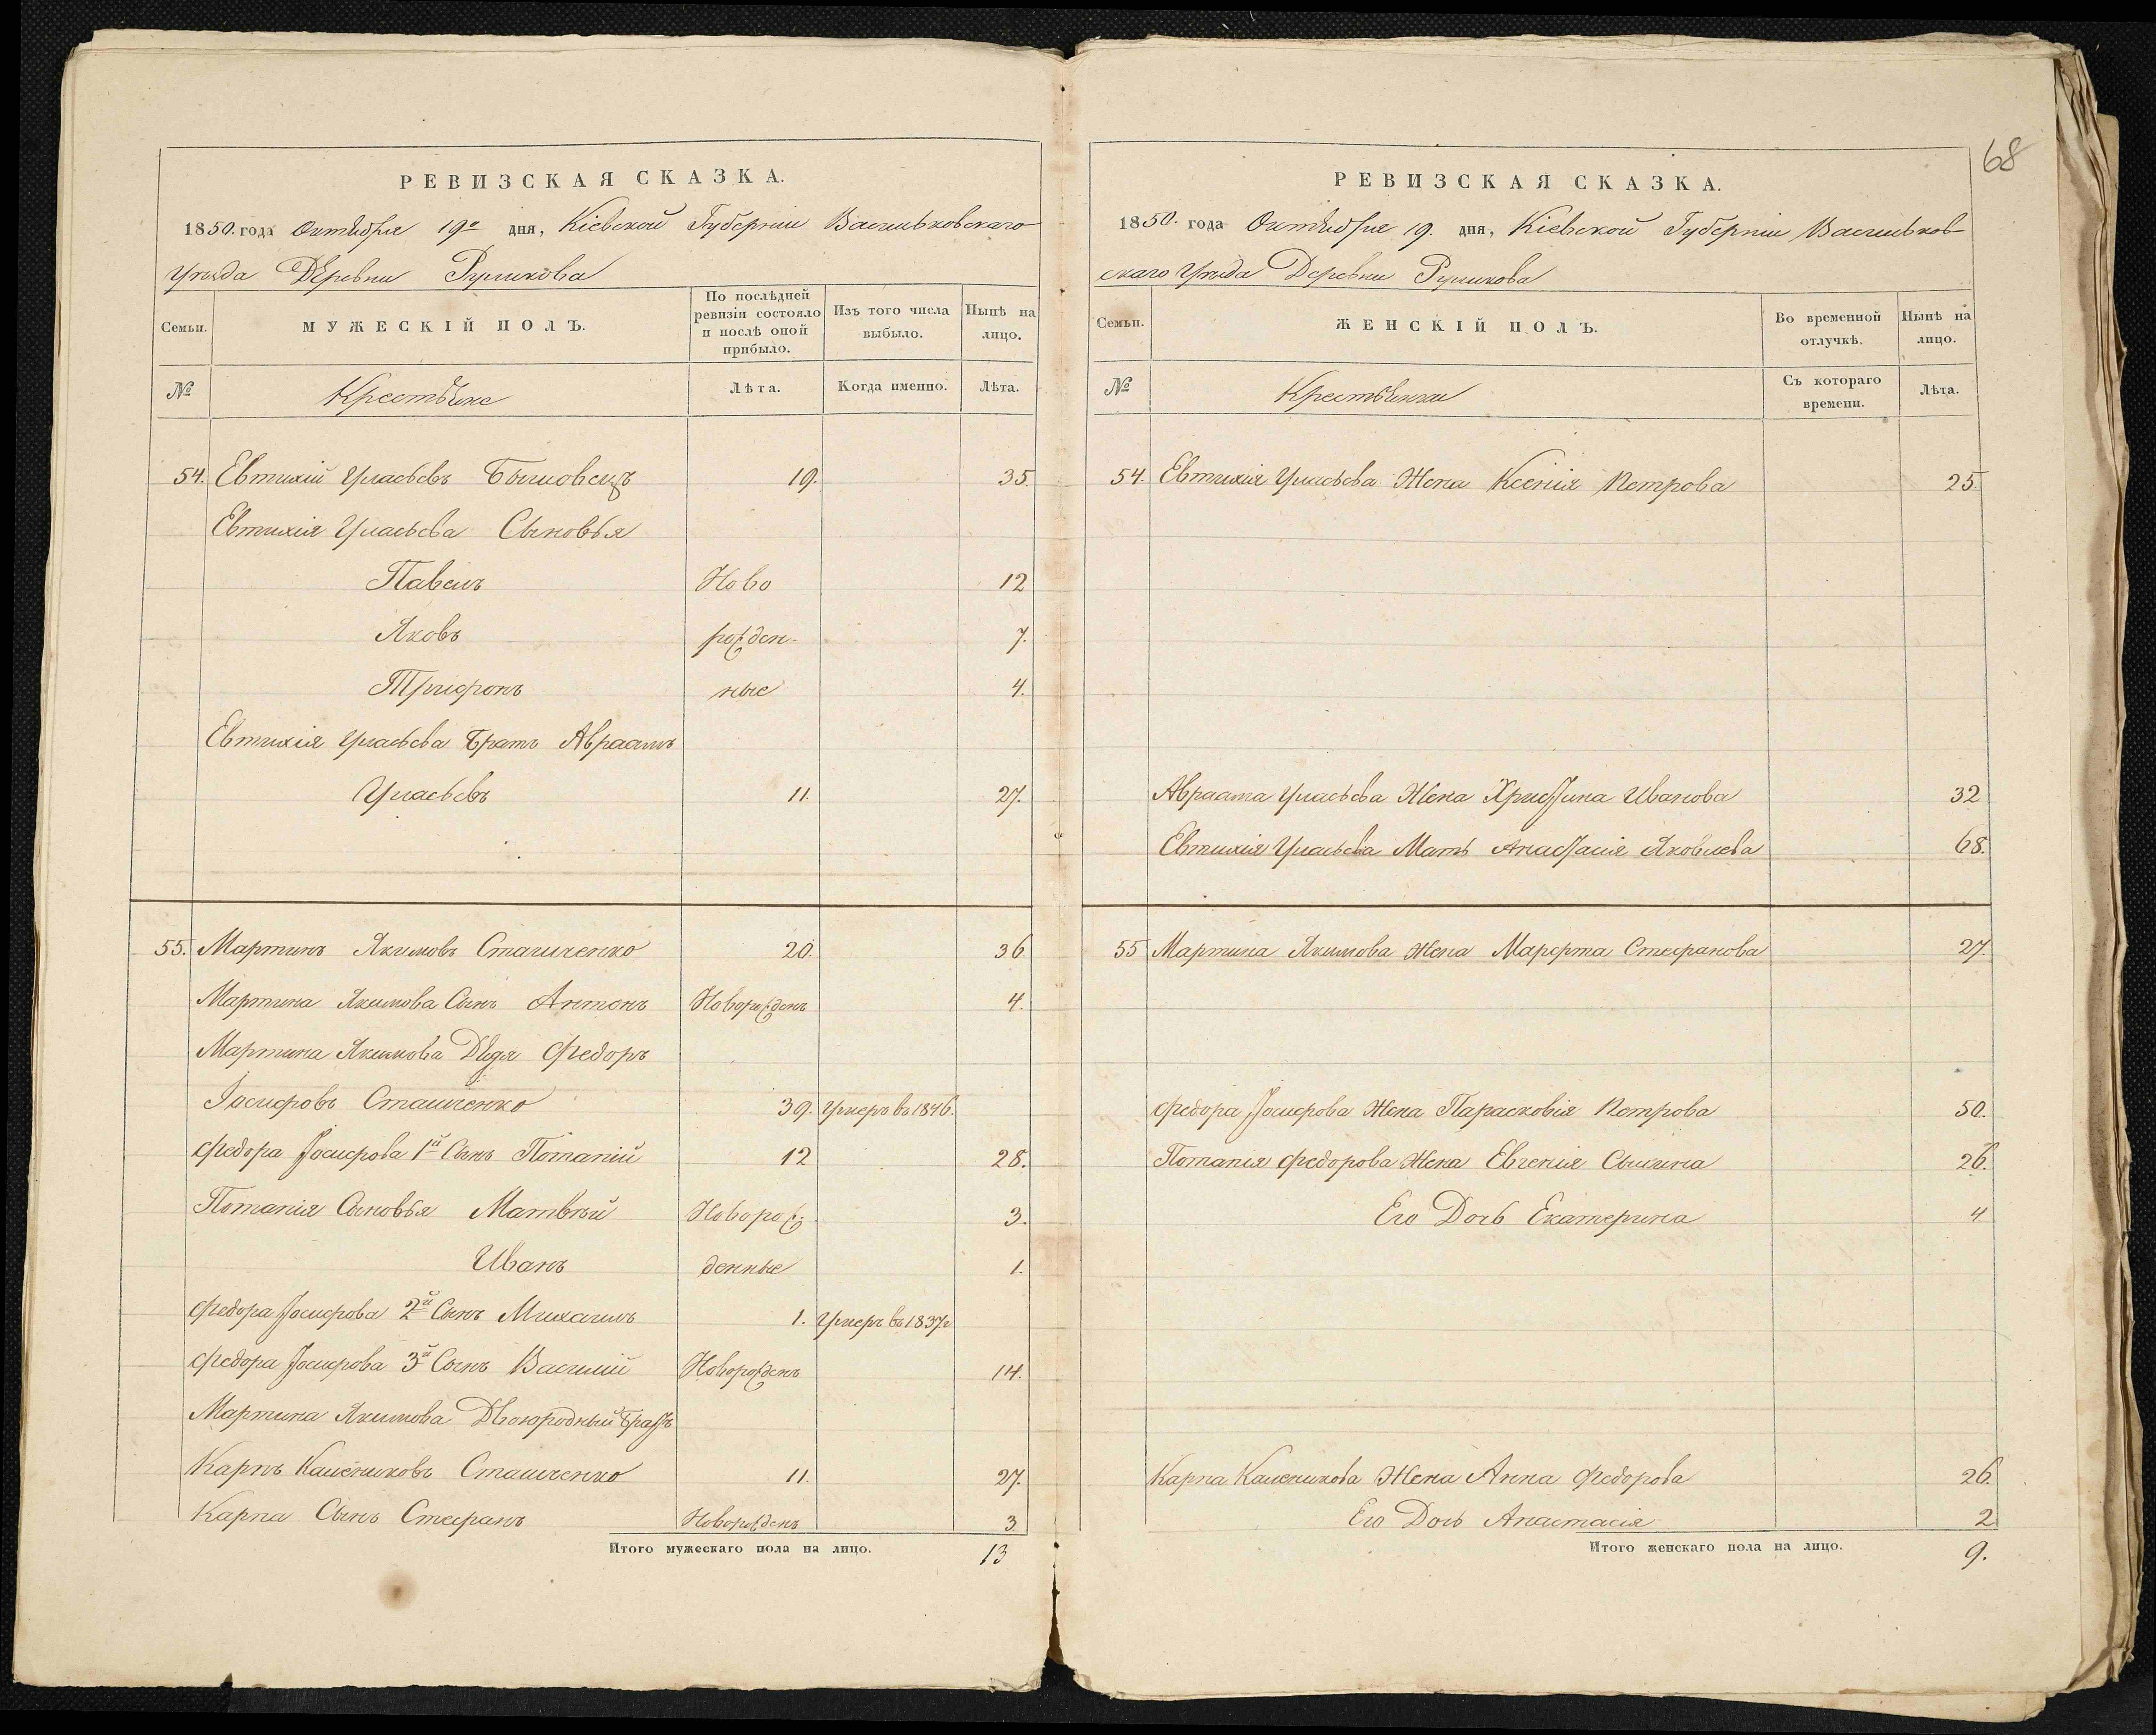 68
РЕВИЗСКАЯ СКАЗКА.
1850. года Октября 19го дня, Кіевской Губерніи Васильковскаго
Уѣзда Деревни Руликова
Семьи.
МУЖЕСКІЙ ПОЛЪ.
По послѣдней ревизіи состояло и послѣ оной прибыло.
Изъ того числа выбыло.
Нынѣ на лицо.
№ Крестьяне Лѣта. Когда именно. Лѣта.
54. Евтихій Уласьевъ 19. 35.
Евтихія Уласьева Сыновья
Павелъ Ново 12
Яковъ рожден- 7.
Трифонъ ные 4.
Евтихія Уласьева Братъ Авраамъ
Уласьевъ 11. 27.
55. Мартинъ Якимовъ Сташченко 20. 36
Мартина Якимова Сынъ Антонъ Новорожденъ 4.
Мартина Якимова Дядя Федоръ
Іосифовъ Сташченко 39. Умеръ въ 1846. 
Федора Іосифова 1й Сынъ Потапій 12 28.
Потапія Сыновья Матвѣй Новорож- 3.
Иванъ денные 1.
Федора Іосифова 2й Сынъ Михаилъ 1. Умеръ въ 1837г
Федора Іосифова 3й Сынъ Василій Новорожденъ 14.
Мартина Якимова Двоюродный Братъ
Карпъ Калениковъ Сташченко 11. 27.
Карпа Сынъ Стефанъ Новорожденъ 3
Итого мужескаго пола на лицо. 13
РЕВИЗСКАЯ СКАЗКА.
1850. года Октября 19. дня, Кіевской Губерніи Васильков-
скаго Уѣзда Деревни Руликова
Семьи.
ЖЕНСКІЙ ПОЛЪ.
Во временной отлучкѣ.
Нынѣ на лицо.
№ Крестьянки Съ котораго времени. Лѣта.
54. Евтихія Уласьева Жена Ксенія Петрова 25.
Авраама Уласьева Жена Христина Иванова 32
Евтихія Уласьева Мать Анастасія Яковлева 68.
55 Мартина Якимова Жена Марфта Стефанова 27.
Федора Іосифова Жена Парасковія Петрова 50.
Потапія Федорова Жена Евгенія 26.
Его Дочь Екатерина 4.
Карпа Каленикова Жена Анна Федорова 26.
Его Дочь Анастасія 2.
Итого женскаго пола на лицо. 9.